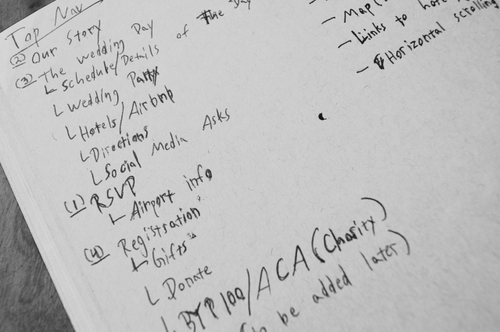 Top Nav
(2) Our Story
(3) The wedding Day
Schedule/Details of the Day
Wedding Party
Hotels/Airbnb
Directions
Social Media Asks
(1) RSVP
Airport info
(4) Registration"
"Gifts"
Donate
BYP100/ACA (Charity)
to be added later)
- Map(
- Links to
- Horizontal scrolling